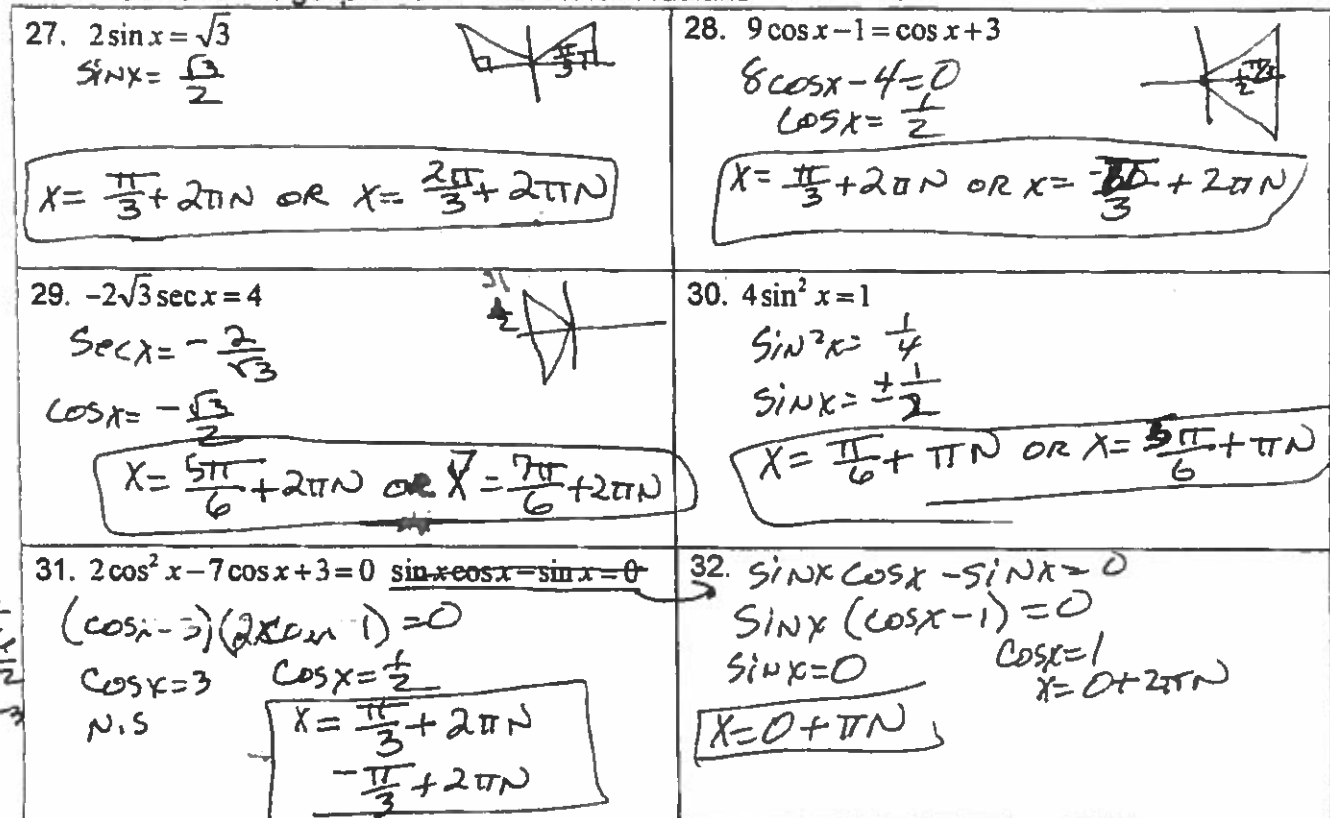 27. 2 sin x = √3
sinx = √3/2
π/3
x = π/3 + 2πN OR x = 2π/3 + 2πN
28. 9 cos x − 1 = cos x + 3
8cosx − 4 = 0
cosx = 1/2
x = π/3 + 2πN OR x = /3 + 2πN
29. −2√3 sec x = 4
Secx = − 2/√3
cosx = − √3/2
x = 5π/6 + 2πN OR x = 7π/6 + 2πN
30. 4 sin² x = 1
Sin²x = 1/4
Sinx = ± 1/2
x = π/6 + πN OR x = 5π/6 + πN
31. 2 cos² x − 7 cos x + 3 = 0 sin x cos x − sin x = 0
(cosx − 3)(2 1) = 0
Cosx = 3 Cosx = 1/2
N.S
x = π/3 + 2πN
−π/3 + 2πN
32. sinx cosx − sinx = 0
Sinx (cosx − 1) = 0
Sinx = 0 Cosx = 1
x = 0 + 2πN
x = 0 + πN